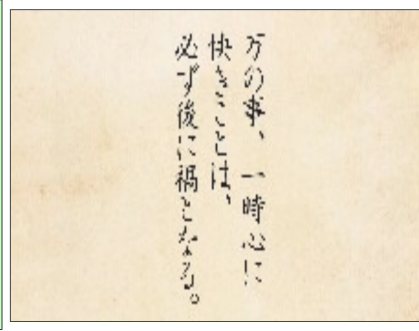 万の事、一時心に
快きことは、
必ず後に禍となる。